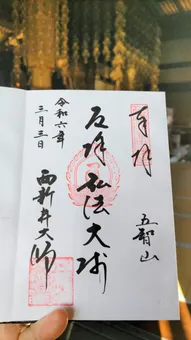 奉拝
五智山
厄除 弘法大師
令和六年
三月三日
西新井大師